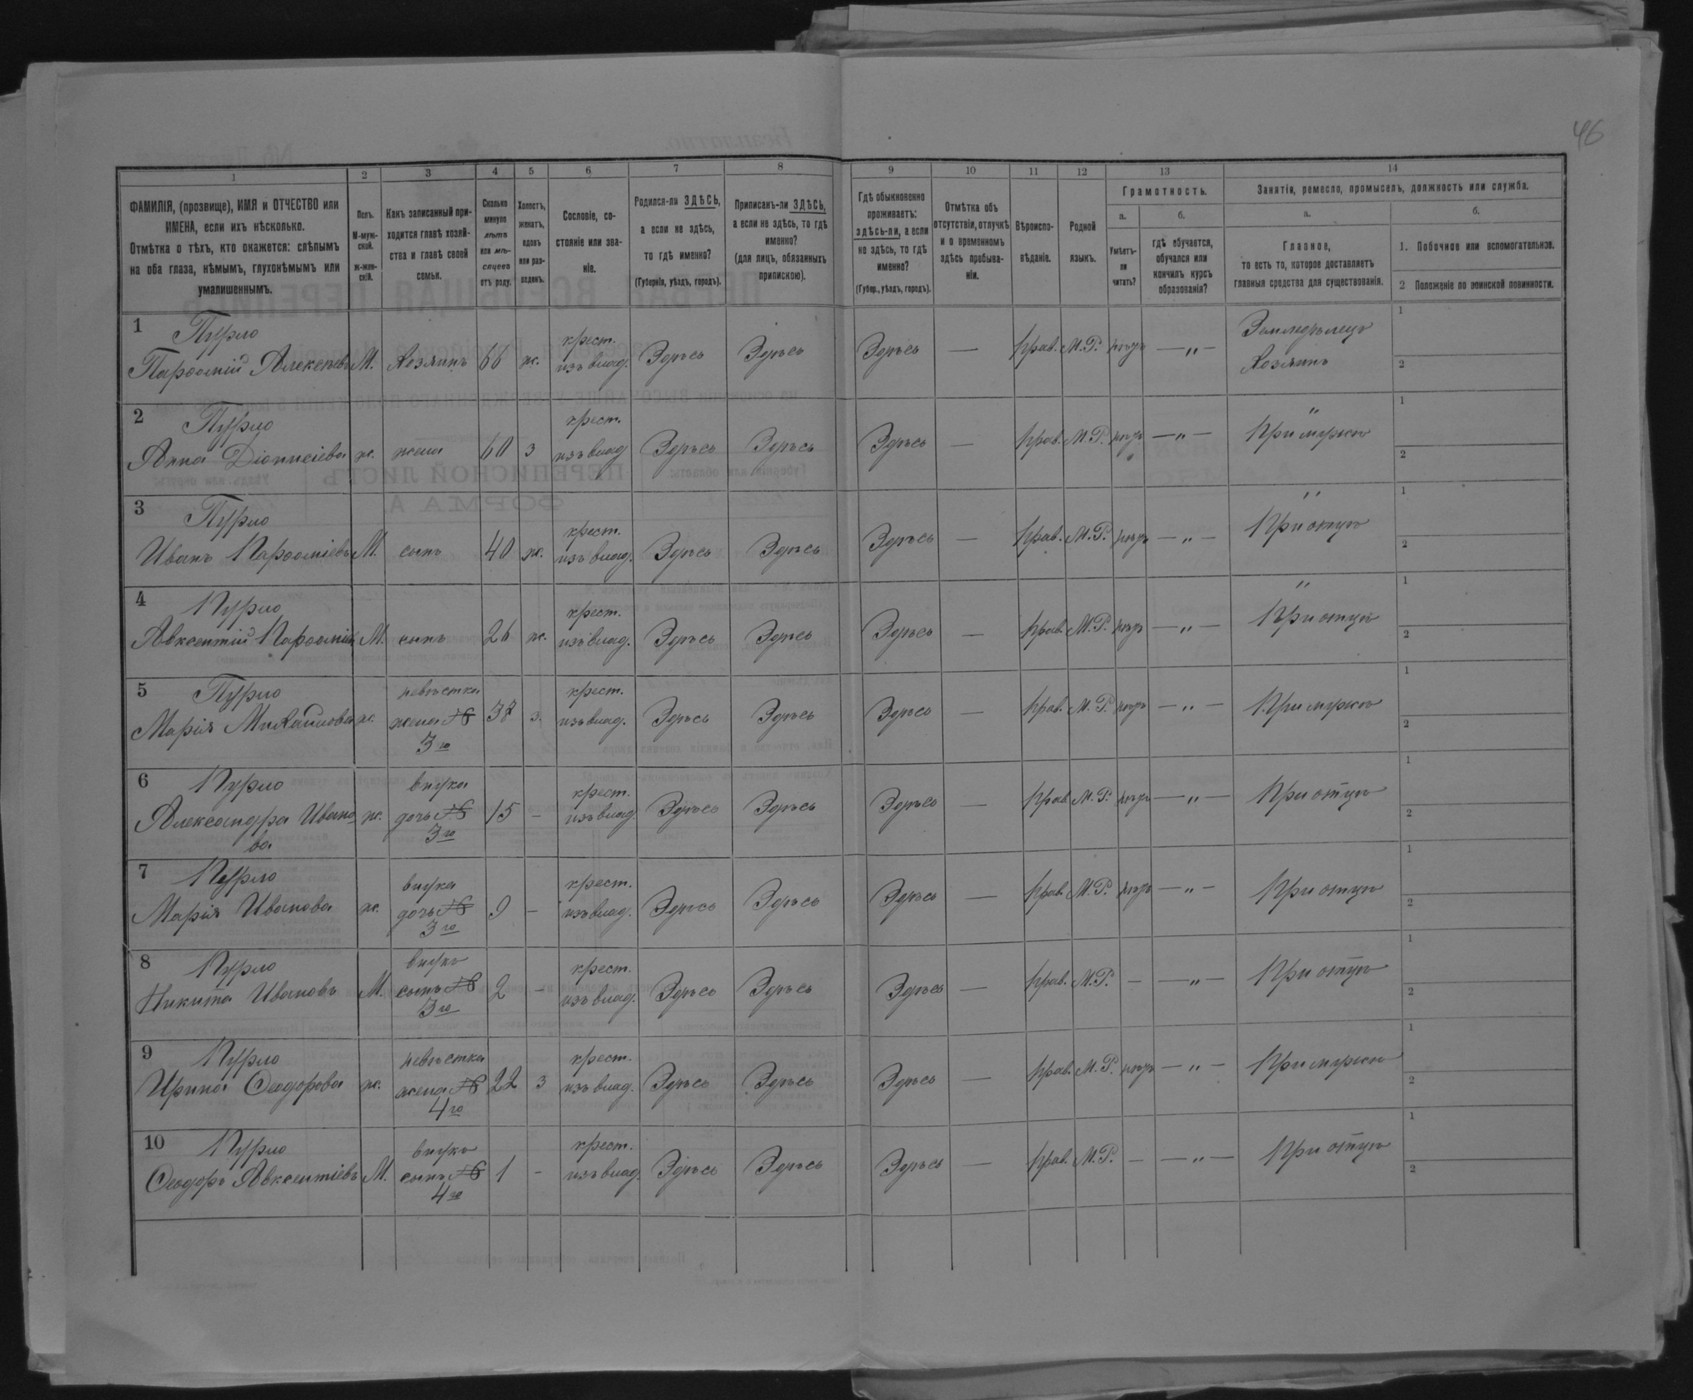 46
1 2 3 4 5 6 7 8 9 10 11 12 13 14
ФАМИЛІЯ, (прозвище), ИМЯ и ОТЧЕСТВО или
ИМЕНА, если ихъ нѣсколько.
Отмѣтка о тѣхъ, кто окажется: слѣпымъ
на оба глаза, нѣмымъ, глухонѣмымъ или
умалишеннымъ.
Полъ.
М-муж-
ской.
ж-жен-
скій.
Какъ записанный при-
ходится главѣ хозяй-
ства и главѣ своей
семьи.
Сколько
минуло
лѣтъ
или мѣ-
сяцевъ
отъ роду.
Холостъ,
женатъ,
вдовъ
или раз-
веденъ.
Сословіе, со-
стояніе или зва-
ніе.
Родился-ли ЗДѢСЬ,
а если не здѣсь,
то гдѣ именно?
(Губернія, уѣздъ, городъ).
Приписанъ-ли ЗДѢСЬ,
а если не здѣсь, то гдѣ
именно?
(для лицъ, обязанныхъ
припискою).
Гдѣ обыкновенно
проживаетъ:
здѣсь-ли, а если
не здѣсь, то гдѣ
именно?
(Губер., уѣздъ, городъ).
Отмѣтка объ
отсутствіи, отлучкѣ
и о временномъ
здѣсь пребыва-
ніи.
Вѣроиспо-
вѣданіе.
Родной
языкъ.
Грамотность.
а.
Умѣетъ-
ли
читать?
б.
гдѣ обучается,
обучался или
кончилъ курсъ
образованія?
Занятіе, ремесло, промыселъ, должность или служба.
а.
Главное,
то есть то, которое доставляетъ
главныя средства для существованія.
б.
1. Побочное или вспомогательное.
2 Положеніе по воинской повинности.
1 Пурло крест. Земледѣлецъ 1
Парѳеній Алексѣевъ М. Хозяинъ 66 ж. изъ влад. Здѣсь Здѣсь Здѣсь — Прав. М.Р. нѣтъ —„— Хозяинъ 2
2 Пурло крест. „ 1
Анна Діонисіева ж. жена 60 з изъ влад Здѣсь Здѣсь Здѣсь — Прав. М.Р. нѣтъ —„— При мужѣ 2
3 Пурло крест. „ 1
Иванъ Парѳеніевъ М. сынъ 40 ж. изъ влад. Здѣсь Здѣсь Здѣсь — Прав. М.Р. нѣтъ —„— При отцѣ 2
4 Пурло крест. „ 1
Авксентій Парѳеніевъ М. сынъ 26 ж. изъ влад. Здѣсь Здѣсь Здѣсь — Прав. М.Р. нѣтъ —„— При отцѣ 2
5 Пурло невѣстка крест. 1
Марія Михайлова ж. жена № 38 з. изъ влад. Здѣсь Здѣсь Здѣсь — Прав. М.Р. нѣтъ —„— При мужѣ 2
3го
6 Пурло внука крест. 1
Александра Ивано ж. дочь № 15 — изъ влад Здѣсь Здѣсь Здѣсь — Прав М.Р. нѣтъ —„— При отцѣ 2
ва 3го
7 Пурло внука крест. 1
Марія Иванова ж. дочь № 9 — изъ влад. Здѣсь Здѣсь Здѣсь — Прав. М.Р. нѣтъ —„— При отцѣ 2
3го
8 Пурло внукъ крест. 1
Никита Ивановъ М. сынъ № 2 — изъ влад. Здѣсь Здѣсь Здѣсь — Прав. М.Р. — —„— При отцѣ 2
3го
9 Пурло невѣстка крест. 1
Ирина Ѳеодорова ж. жена № 22 з изъ влад. Здѣсь Здѣсь Здѣсь — Прав. М.Р. нѣтъ —„— При мужѣ 2
4го
10 Пурло внукъ крест. 1
Ѳеодоръ Авксентіевъ М. сынъ № 1 — изъ влад. Здѣсь Здѣсь Здѣсь — Прав. М.Р. — —„— При отцѣ 2
4го